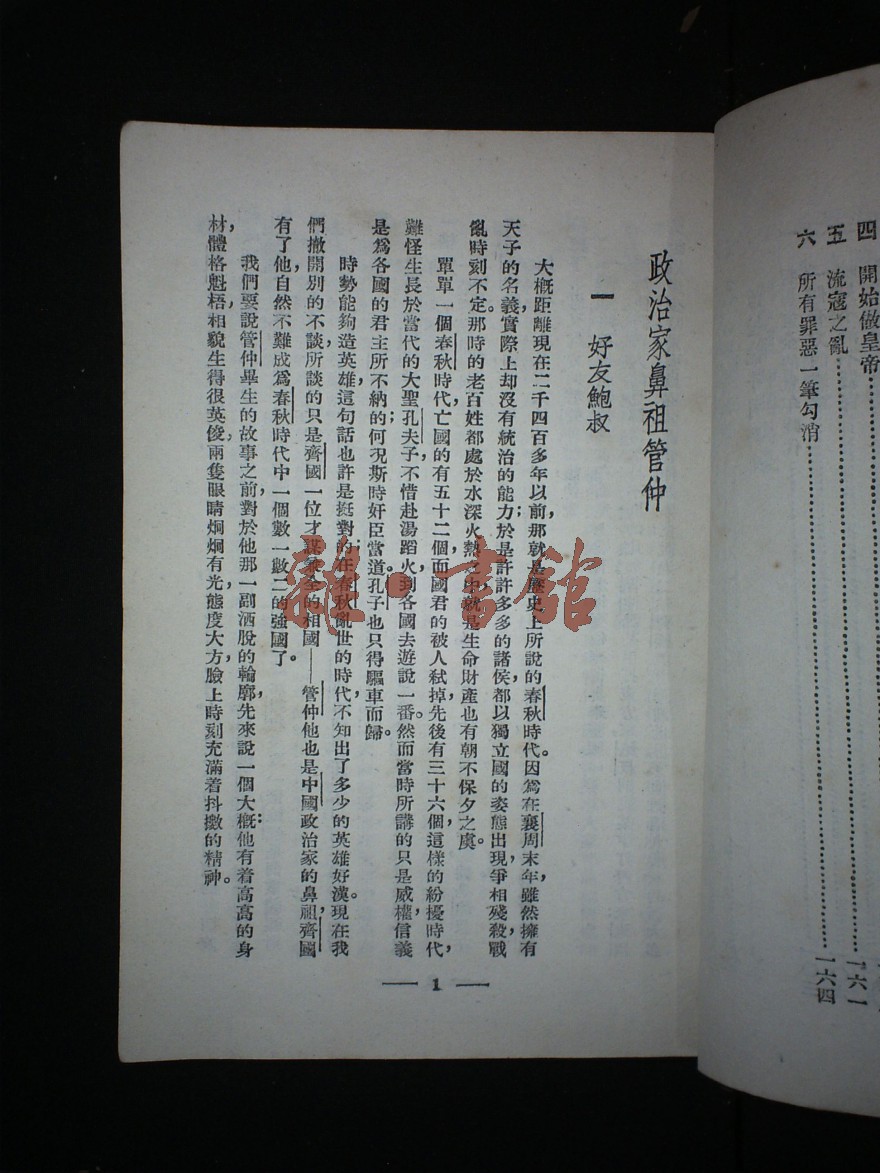 四　開始做皇帝……一六一
五　流寇之亂
六　所有罪惡一筆勾消……一六四
政治家鼻祖管仲
一　好友鮑叔
大概距離現在二千四百多年以前，那就是歷史上所說的春秋時代。因爲在襄周末年，雖然擁有
天子的名義，實際上却沒有統治的能力，於是許許多多的諸侯，都以獨立國的姿態出現，爭相殘殺，戰
亂時刻不定，那時的老百姓都處於水深火熱之中，就是生命財產也有朝不保夕之虞。
單單一個春秋時代，亡國的有五十二個，而國君的被人弒掉，先後有三十六個，這樣的紛擾時代，
難怪生長於當代的大聖孔夫子，不惜赴湯蹈火，到各國去遊說一番。然而當時所講的只是威權，信義
是爲各國的君主所不納的；何况斯時奸臣當道，孔子也只得驅車而歸。
時勢能夠造英雄，這句話也許是挺對的；在春秋亂世的時代，不知出了多少的英雄好漢。現在我
們撇開別的不談，所談的只是齊國一位才謀兼全的相國——管仲，他也是中國政治家的鼻祖，齊國
有了他，自然不難成爲春秋時代中一個數一數二的強國了。
我們要說管仲畢生的故事之前，對於他那一副洒脫的輪廓，先來說一個大概：他有着高高的身
材，體格魁梧，相貌生得很英俊，兩隻眼睛烱烱有光，態度大方，臉上時刻充滿着抖擻的精神。
— 1 —
龍·書館